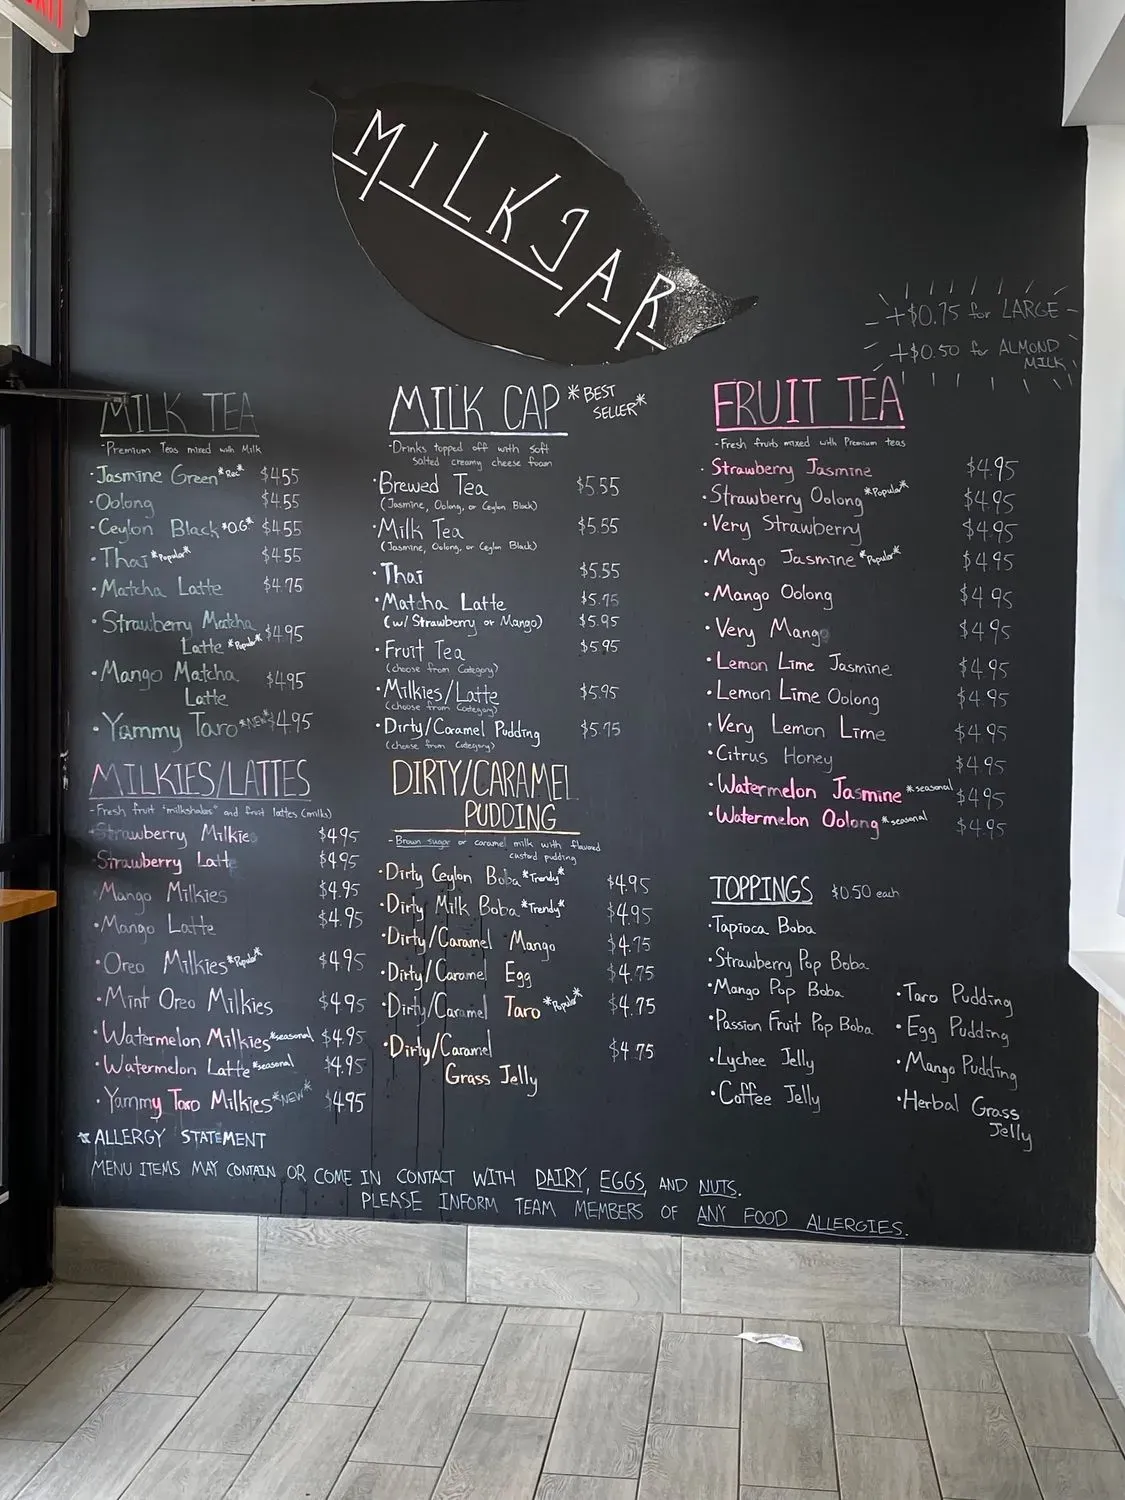 MILKJAR
+$0.75 for LARGE
+$0.50 for ALMOND
MILK
MILK TEA
-Premium Teas mixed with Milk
·Jasmine Green *Rec* $4.55
·Oolong $4.55
·Ceylon Black *OG* $4.55
·Thai *Popular* $4.55
·Matcha Latte $4.75
·Strawberry Matcha
Latte *Popular* $4.95
·Mango Matcha
Latte $4.95
·Yammy Taro *NEW* $4.95
MILKIES/LATTES
-Fresh fruit "milkshakes" and fruit lattes (milks)
·Strawberry Milkies $4.95
·Strawberry Latte $4.95
·Mango Milkies $4.95
·Mango Latte $4.95
·Oreo Milkies *Popular* $4.95
·Mint Oreo Milkies $4.95
·Watermelon Milkies *seasonal $4.95
·Watermelon Latte *seasonal $4.95
·Yammy Taro Milkies *NEW* $4.95
MILK CAP *BEST
SELLER*
-Drinks topped off with soft
salted creamy cheese foam
·Brewed Tea $5.55
(Jasmine, Oolong, or Ceylon Black)
·Milk Tea $5.55
(Jasmine, Oolong, or Ceylon Black)
·Thai $5.55
·Matcha Latte $5.75
(w/ Strawberry or Mango) $5.95
·Fruit Tea $5.95
(choose from Category)
·Milkies/Latte $5.95
(choose from Category)
·Dirty/Caramel Pudding $5.75
(choose from Category)
DIRTY/CARAMEL
PUDDING
-Brown sugar or caramel milk with flavored
custard pudding
·Dirty Ceylon Boba *Trendy* $4.95
·Dirty Milk Boba *Trendy* $4.95
·Dirty/Caramel Mango $4.75
·Dirty/Caramel Egg $4.75
·Dirty/Caramel Taro *Popular* $4.75
·Dirty/Caramel $4.75
Grass Jelly
FRUIT TEA
-Fresh fruits mixed with Premium teas
·Strawberry Jasmine $4.95
·Strawberry Oolong *Popular* $4.95
·Very Strawberry $4.95
·Mango Jasmine *Popular* $4.95
·Mango Oolong $4.95
·Very Mango $4.95
·Lemon Lime Jasmine $4.95
·Lemon Lime Oolong $4.95
·Very Lemon Lime $4.95
·Citrus Honey $4.95
·Watermelon Jasmine *seasonal $4.95
·Watermelon Oolong *seasonal $4.95
TOPPINGS $0.50 each
·Tapioca Boba
·Strawberry Pop Boba
·Mango Pop Boba
·Passion Fruit Pop Boba
·Lychee Jelly
·Coffee Jelly
·Taro Pudding
·Egg Pudding
·Mango Pudding
·Herbal Grass
Jelly
*ALLERGY STATEMENT
MENU ITEMS MAY CONTAIN OR COME IN CONTACT WITH DAIRY, EGGS, AND NUTS.
PLEASE INFORM TEAM MEMBERS OF ANY FOOD ALLERGIES.